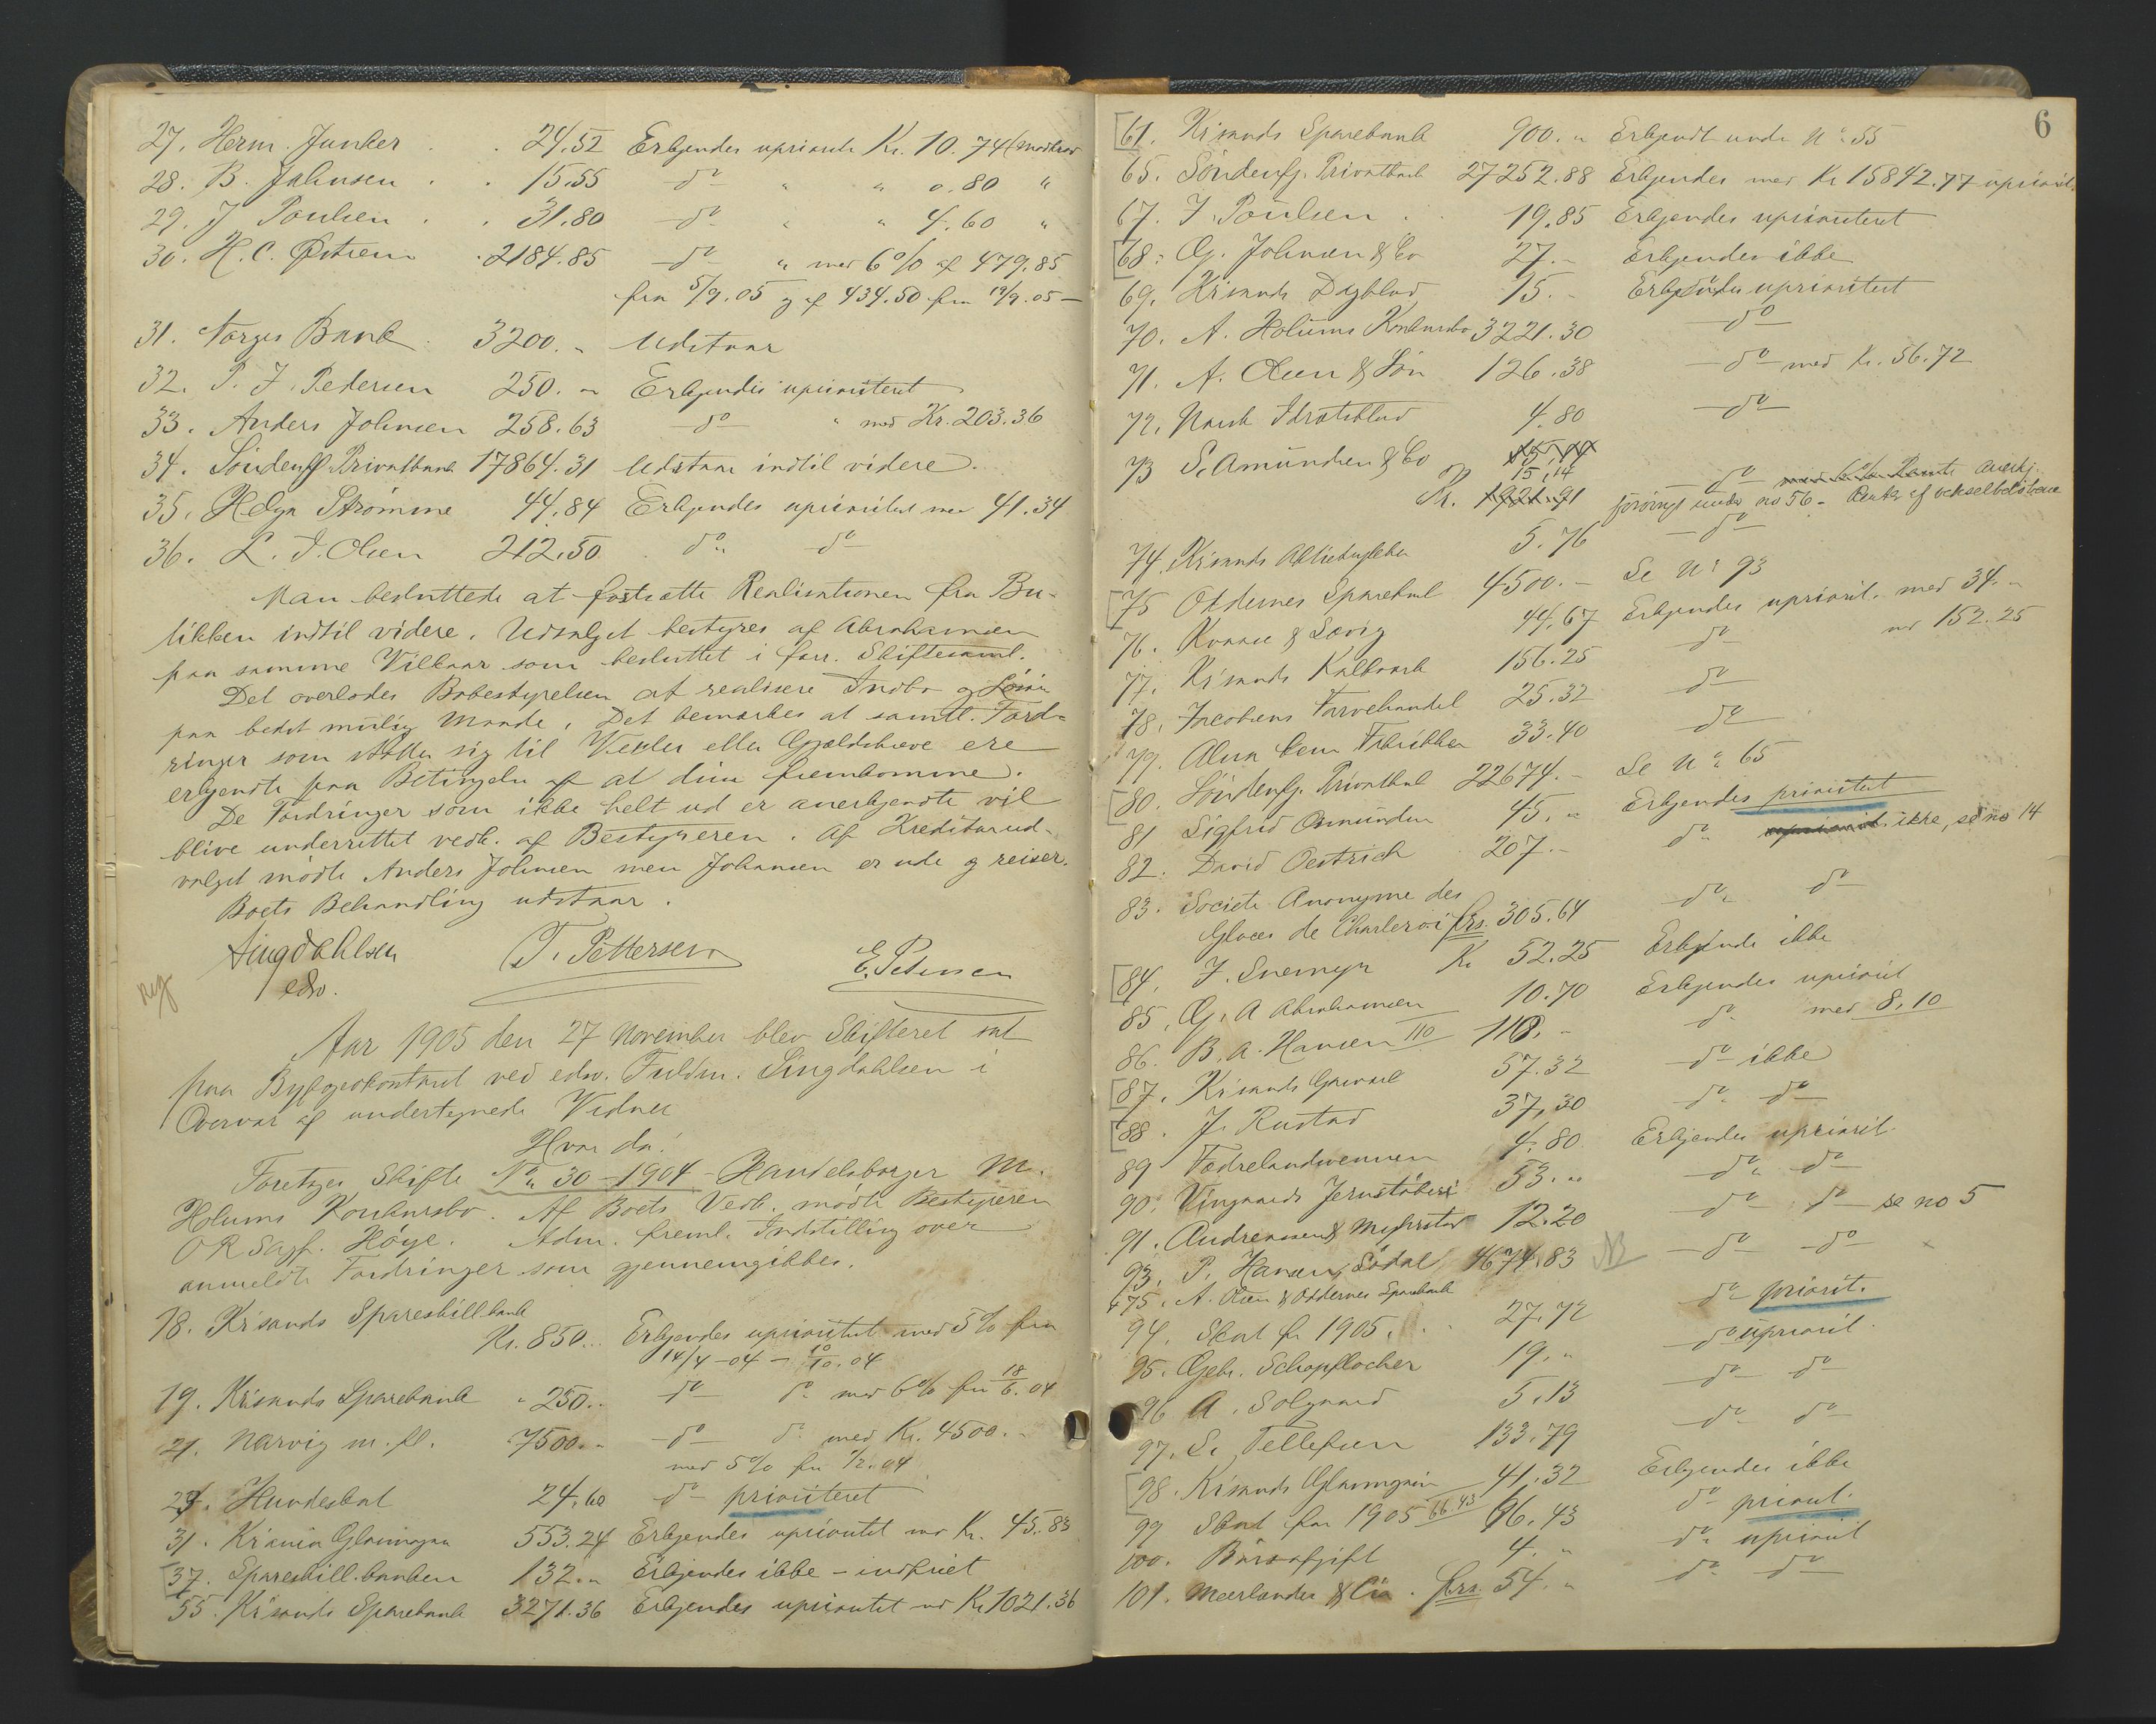 27. Herm. Junker . . 24.52 Erkjendes uprioritr Kr. 10.74 (modkrav
28. B. Johnsen . . 15.55 do " " 0.80 "
29. J Poulsen . . 31.80 do " " 4.60 "
30. H. C. Østrem . 2184.85 do " med 6% af 479.85
fra 5/9.05 og af 434.50 fra 19/9.05 –
31. Norges Bank . 3200. " Udstaar
32. P. J. Pedersen 250. " Erkjendes uprioriteret
33. Anders Johnsen 258.63 do " med Kr. 203.36
34. Söndenfj Privatbank 17864.31 Udstaar indtil videre.
35. Helga Strömme 44.84 Erkjendes uprioritert med 41.34
36. L. J. Olsen 212.50 do " do
Man besluttede at fortsætte Realisationen fra Bu-
tikken indtil videre. Udsalget bestyres af Abrahamsen
paa samme Vilkaar som besluttet i forr. Skiftesaml.
Det overlodes Bobestyrelsen at realisere Indbo og Lösöre
paa bedst mulig Maade. Det bemærkes at samtl. Ford-
ringer som støtter sig til Vexler eller Gjældsbreve ere
erkjendte paa Betingelse af at disse fremkomme.
De Fordringer som ikke helt ud er anerkjendte vil
blive underrettet vedk. af Bestyreren. Af Kreditorud-
valget mødte Anders Johnsen men Johansen er ude og reiser.
Boets Behandling udstaar.
Singdahlsen T. Pettersen E. Petersen
edsv.
Aar 1905 den 27 November blev Skifteret sat
paa Byfogedkontoret ved edsv. Fuldm. Singdahlsen i
Overvær af undertegnede Vidner
Hvor da:
Foretages Skifte No 30 – 1904 – Handelsborger M.
Holums Konkursbo. Af Boets Vedk. mødte Bestyreren
ORSagf. Høye. Adm. freml. Indstilling over
anmeldte Fordringer som gjennemgikkes.
18. Krsands Spareskill.bank
Kr. 850... Erkjendes uprioritet med 5% fra
14/4 – 04 – 10/10.04
19. Krsands Sparebank " 250.. do do med 6% fra 18/6.04
21. Narvig m. fl. . 7500. " do do med Kr. 4500. "
med 5% fra 1/2.04
27. Hundeskat 24.60 do prioriteret
31. Krsands Glasmagasin 553.24 Erkjendes uprioritet med Kr. 45.83
37. Spareskill.banken 132. " Erkjendes ikke – indfriet
55. Krsands Sparebank 3271.36 Erkjendes uprioritet med Kr 1021.36
6
61. Krsands Sparebank 900. " Erkjendt under No 55
65. Söndenfj. Privatbank 27252.88 Erkjendes med Kr 15842.77 uprioit.
67. J. Poulsen . 19.85 Erkjendes uprioriteret
68. G. Johnsen & Co 27. – Erkjendes ikke
69. Krsands Dagblad 15. – Erkjendes uprioritert
70. A. Holums Konkursbo 3221.30 do
71. A. Olsen & Sön 126.38 do med Kr. 56.72
72. Norsk Idrætsblad 4.80 do
73 S. Amundsen & Co 15,14
Kr. 1921.91 do med 6% Rente anerkj.
forövrigt under no 56 – Rente af vekselbelöbene
74. Krsands Aktiebryggeri 5.76 do
75 Oddernes Sparebank 4500. – Se No 93
76. Kvaase & Lövig 44.67 Erkjendes uprioril. med 34. –
77. Krsands Kalkværk 156.25 do med 152.25
78. Jacobsens Farvehandel 25.32 do
79. Alma kem Fabrikker 33.40 do
80. Söndenfj. Privatbank 22674. – Se No 65
81 Sigfred Amundsen 45. " Erkjendes prioritert
82. David Oestrich 207. – do ikke, se no 14
83. Societe Anonyme des
Glaces de Charleroi frs. 305.64 do do
84. J. Snemyr Kr 52.25 Erkjendes ikke
85. G. A Abrahamsen 10.70 Erkjendes uprioril
86. B. A. Hansen 110 118. – do med 8.10
87. Krsands Gasværk 57.32 do ikke
88. J. Rustad 37,30 do do
89 Fædrelandsvennen 4.80 Erkjendes uprioril.
90. Vingaards Jernstöberi 53. " do do
91. Andreassen & Myhrstad 12.20 do do se no 5
93. P. Hansen, Södal 4674.83 NB do do
+75. A. Olsen & Oddernes Sparebank
94. Skat for 1905. . . 27.72 do priorit.
95. Gebr. Schopflocher 19. " do uprioril.
96 A. Solgaard 5.13 do do
97. S. Tellefsen 133.79 do do
98. Krsands Glasmagasin 41.32 Erkjendes ikke
99 Skat for 1905 66.43 66.43 do priorit.
100. Börsafgift 4. " do uprioril
101. Meerlander & Cia . frs. 54. " do do